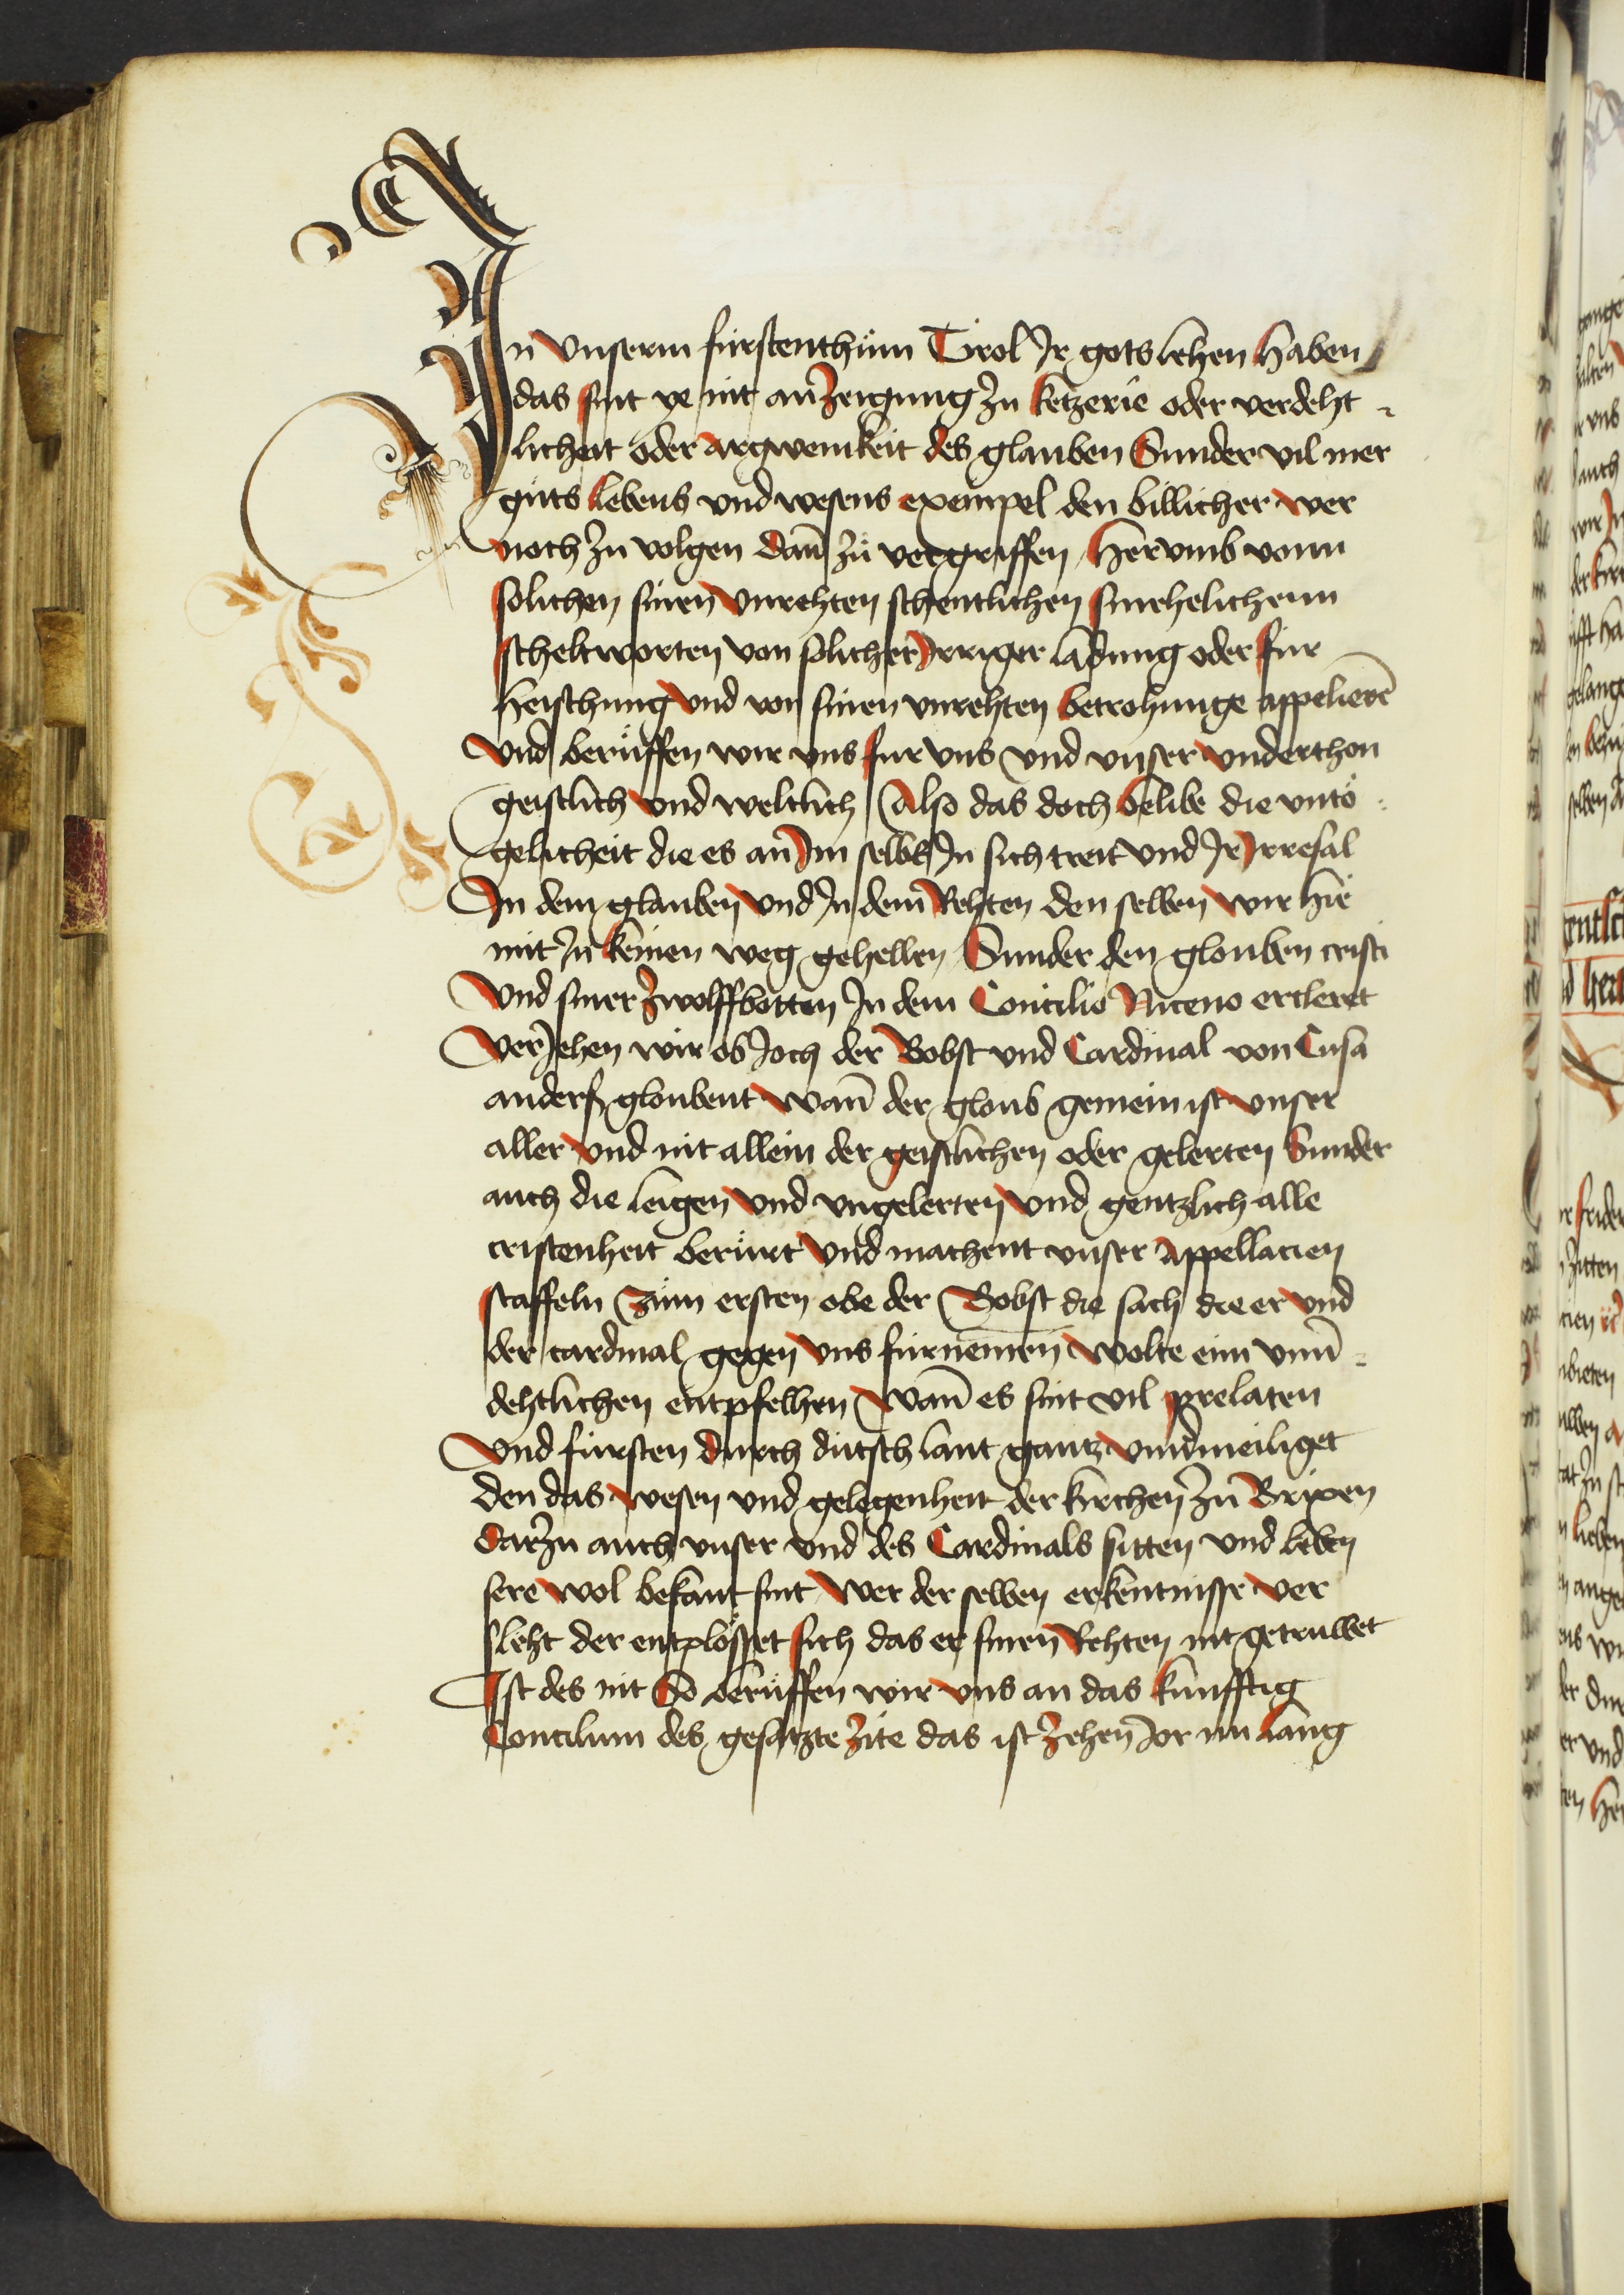 In vnserm fürstenthům Tirol Ir gots lehen haben
das sint ye nit anzeigung zu ketzerie oder verdeht
licheit oder argwenikeit des glauben Sunder vil mer
gůts lebens vnd wesens exempel den billicher wer
noch zu volgen dañ zů vergriffen / Hervmb vonn
solichen sinen vnrehten schentlichen smehelichenn
scheltworten von solicher Irriger ladung oder für
heischung vnd von sinen vnrehten betrohunge appelierē
vnd berůffen wir vns für vns vnd vnser vnderthon
geistlich vnd weltlich / Also das doch belibe die vntö
gelicheit die es an Im selbs In sich treit vnd Ir Irresal
In dem glauben vnd In dem Rehten den selben wir hie
mit In keinen weg gehellen / Sunder den glouben cristi
vnd siner zwolffbotten In dem Concilio Niceno ercleret
Veriehen wir ob Joch der Bobst vnd Cardinal von Cusa
anders gloubent wañ der gloub gemein ist vnser
aller vnd nit allein der geistlichen oder gelerten Sunder
auch die leigen vnd vngelerten vnd gentzlich alle
cristenheit berůrt vnd machent vnser appellacien
staffeln Zům ersten obe der Bobst die sach die er vnd
der cardinal gegen vns fürnemen wolte eim vnũ
dehtlichen entpfelhen wañ es sint vil prelaten
vnd fürsten durch dütsch lant gantz vnũmeiliget
den das wesen vnd gelegenheit der kirchen zů Brixen
darzu auch vnser vnd des Cardinals sitten vnd leben
sere wol bekant sint Wer der selben erkentnisse ver
sleht der entplösset sich das er sinen Rehten nit getruwet
Ist des nit So berůffen wir vns an das kunfftig
Concilium des gesatzte zite das ist zehen Jor nu lang